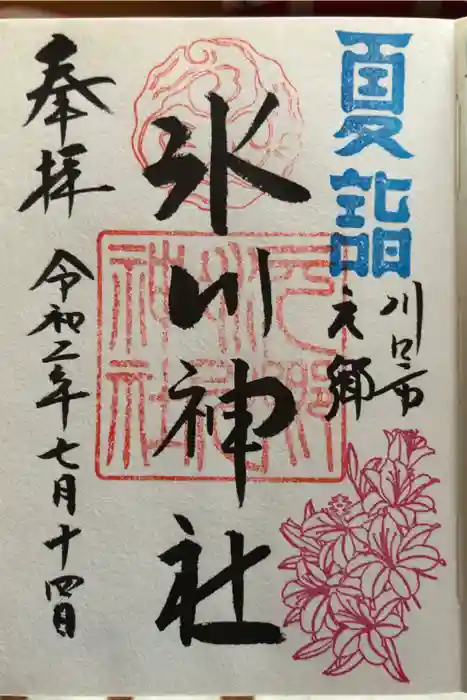 夏詣
川口市
元郷
氷川神社
元郷氷川神社
奉拝
令和二年七月十四日